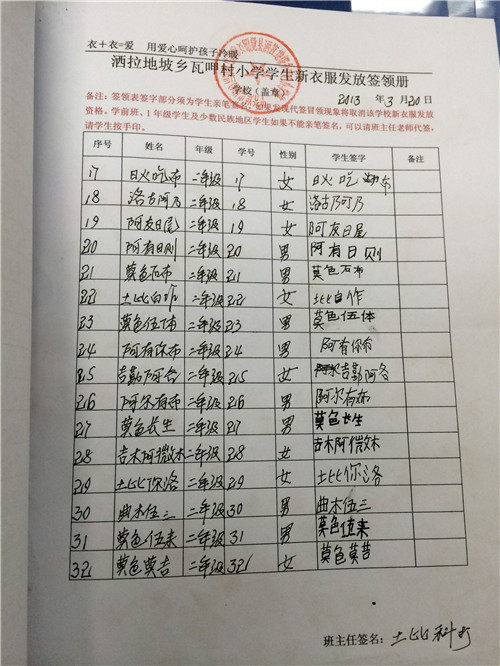 衣+衣=爱 用爱心呵护孩子冷暖
洒拉地坡乡瓦呷村小学学生新衣服发放签领册
学校（盖章） 2013 年 3 月 20 日
备注：签领表签字部分须为学生亲笔签名，如果发现代签冒领现象将取消该学校新衣服发放
资格，学前班、1年级学生及少数民族地区学生如果不能亲笔签名，可以请班主任老师代签，
请学生按手印。
序号 姓名 年级 学号 性别 学生签字 备注
17 日火吃布 二年级 17 女 日火吃布
18 洛古阿乃 二年级 18 女 洛古阿乃
19 阿友日尾 二年级 19 女 阿友日尾
20 阿有日则 二年级 20 男 阿有日则
21 莫色石布 二年级 21 男 莫色石布
22 土比自作 二年级 22 女 土比自作
23 莫色伍体 二年级 23 男 莫色伍体
24 阿有你布 二年级 24 男 阿有你布
25 吉勒阿各 二年级 25 女 阿尔吉勒阿各
26 阿尔有布 二年级 26 男 阿尔有布
27 莫色长生 二年级 27 男 莫色长生
28 吉木阿微木 二年级 28 女 吉木阿微木
29 土比你洛 二年级 29 女 土比你洛
30 曲木伍三 二年级 30 男 曲木伍三
31 莫色伍来 二年级 31 男 莫色伍来
32 莫色莫吉 二年级 32 女 莫色莫吉
班主任签名： 土比科